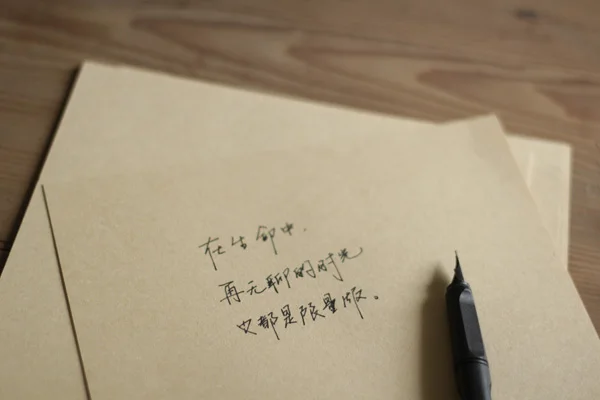 在生命中.
再无聊的时光
也都是限量版。